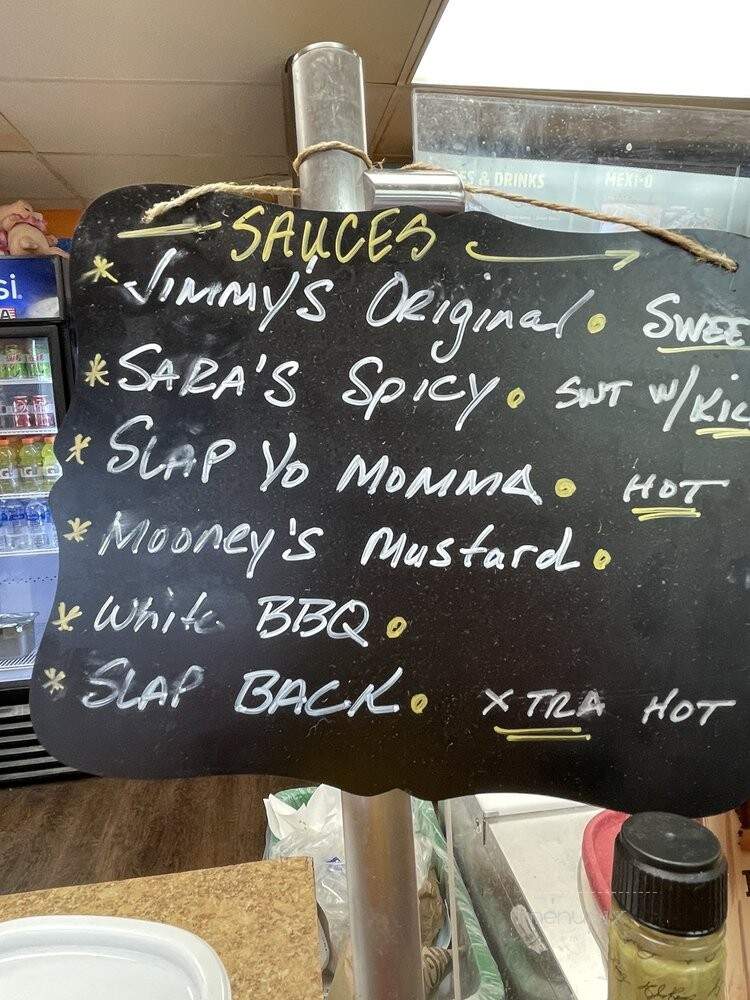 SAUCES
* Jimmy's Original. SWEE
* SARA'S SPICY. SWT W/KIC
* SLAP YO MOMMA. HOT
* Mooney's Mustard.
* White BBQ.
* SLAP BACK. XTRA HOT
ES & DRINKS
MEXI-O
si